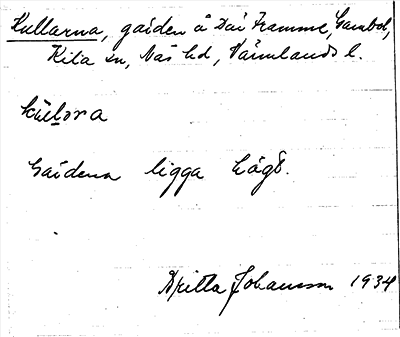 Kullarna, gården å Där Framme, Gambol,
Kila sn, Näs hd, Värmlands l.
kúl̠ɒra
Gårdena ligga högt.
Britta Johansson 1934